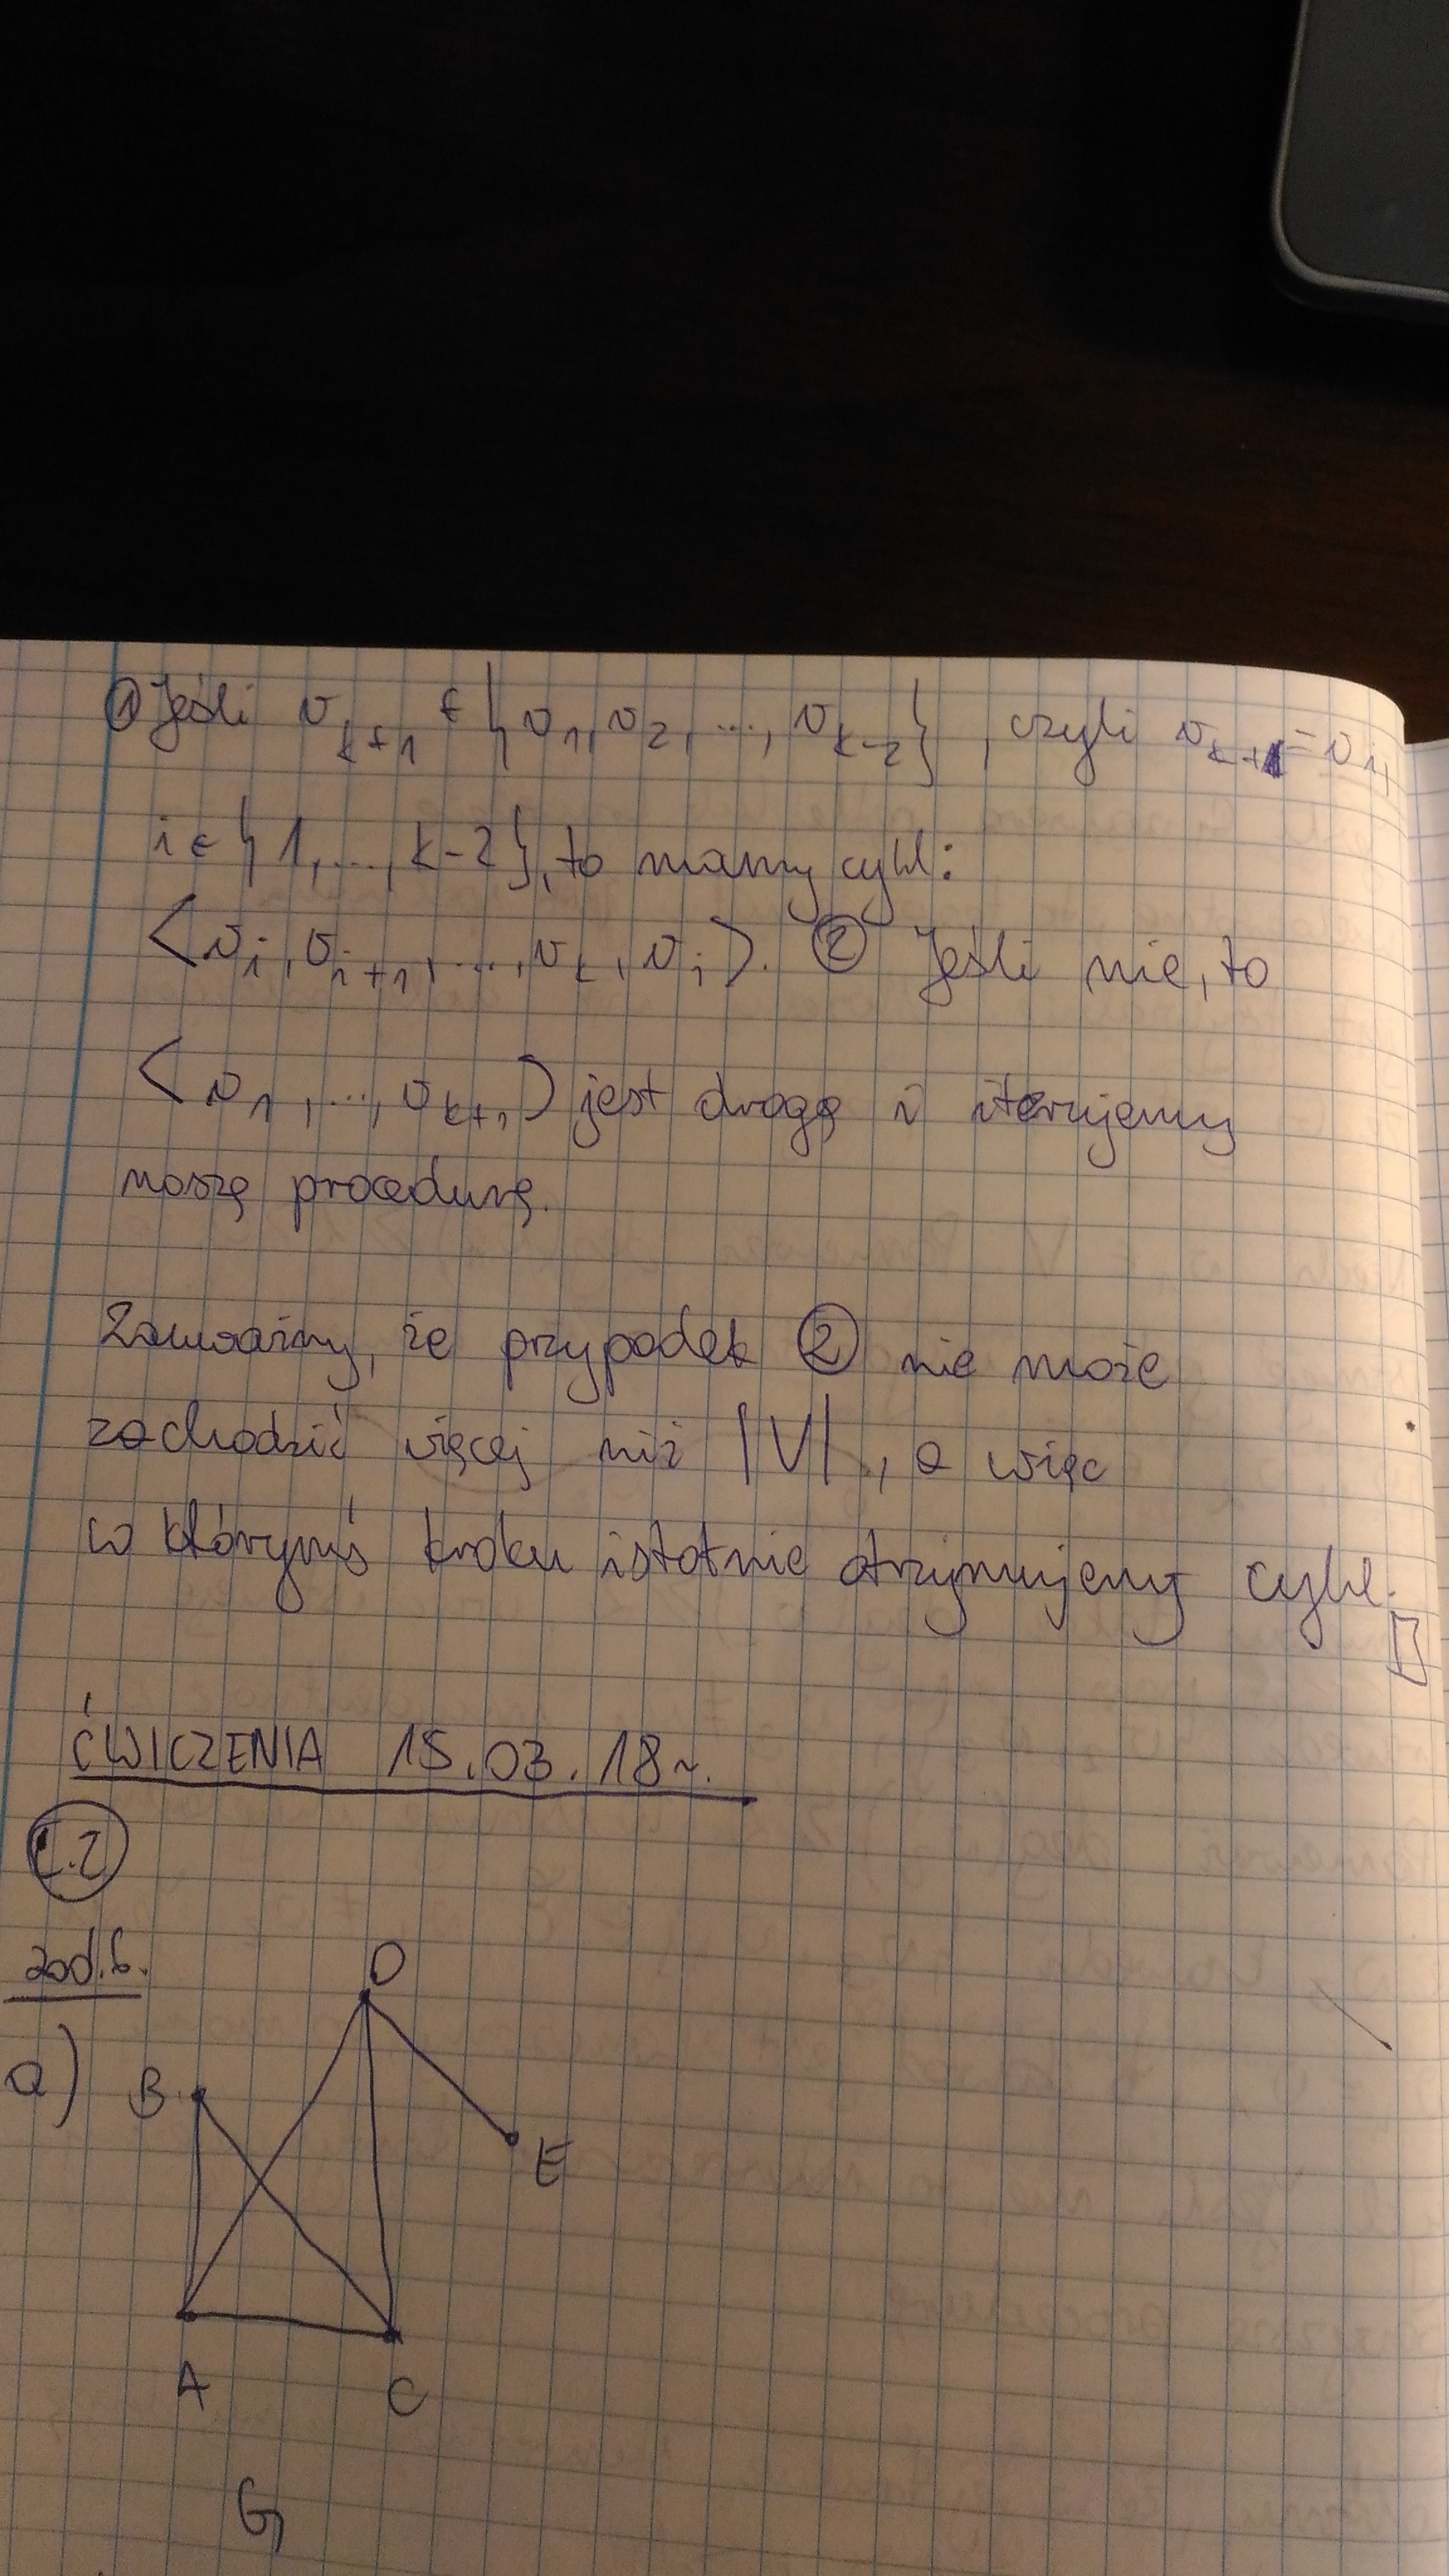 ① Jeśli v_{k+1} ∈ {v_1, v_2, ..., v_{k-2}}, czyli v_{k+1} = v_i,
i ∈ {1, ..., k-2}, to mamy cykl:
⟨v_i, v_{i+1}, ..., v_k, v_i⟩. ② Jeśli nie, to
⟨v_1, ..., v_{k+1}⟩ jest drogą i iterujemy
naszą procedurę.
Zauważmy, że przypadek ② nie może
zachodzić więcej niż |V|, a więc
w którymś kroku istotnie otrzymujemy cykl. □
ĆWICZENIA 15.03.18r.
zad.6.
a) B D E
A C
G